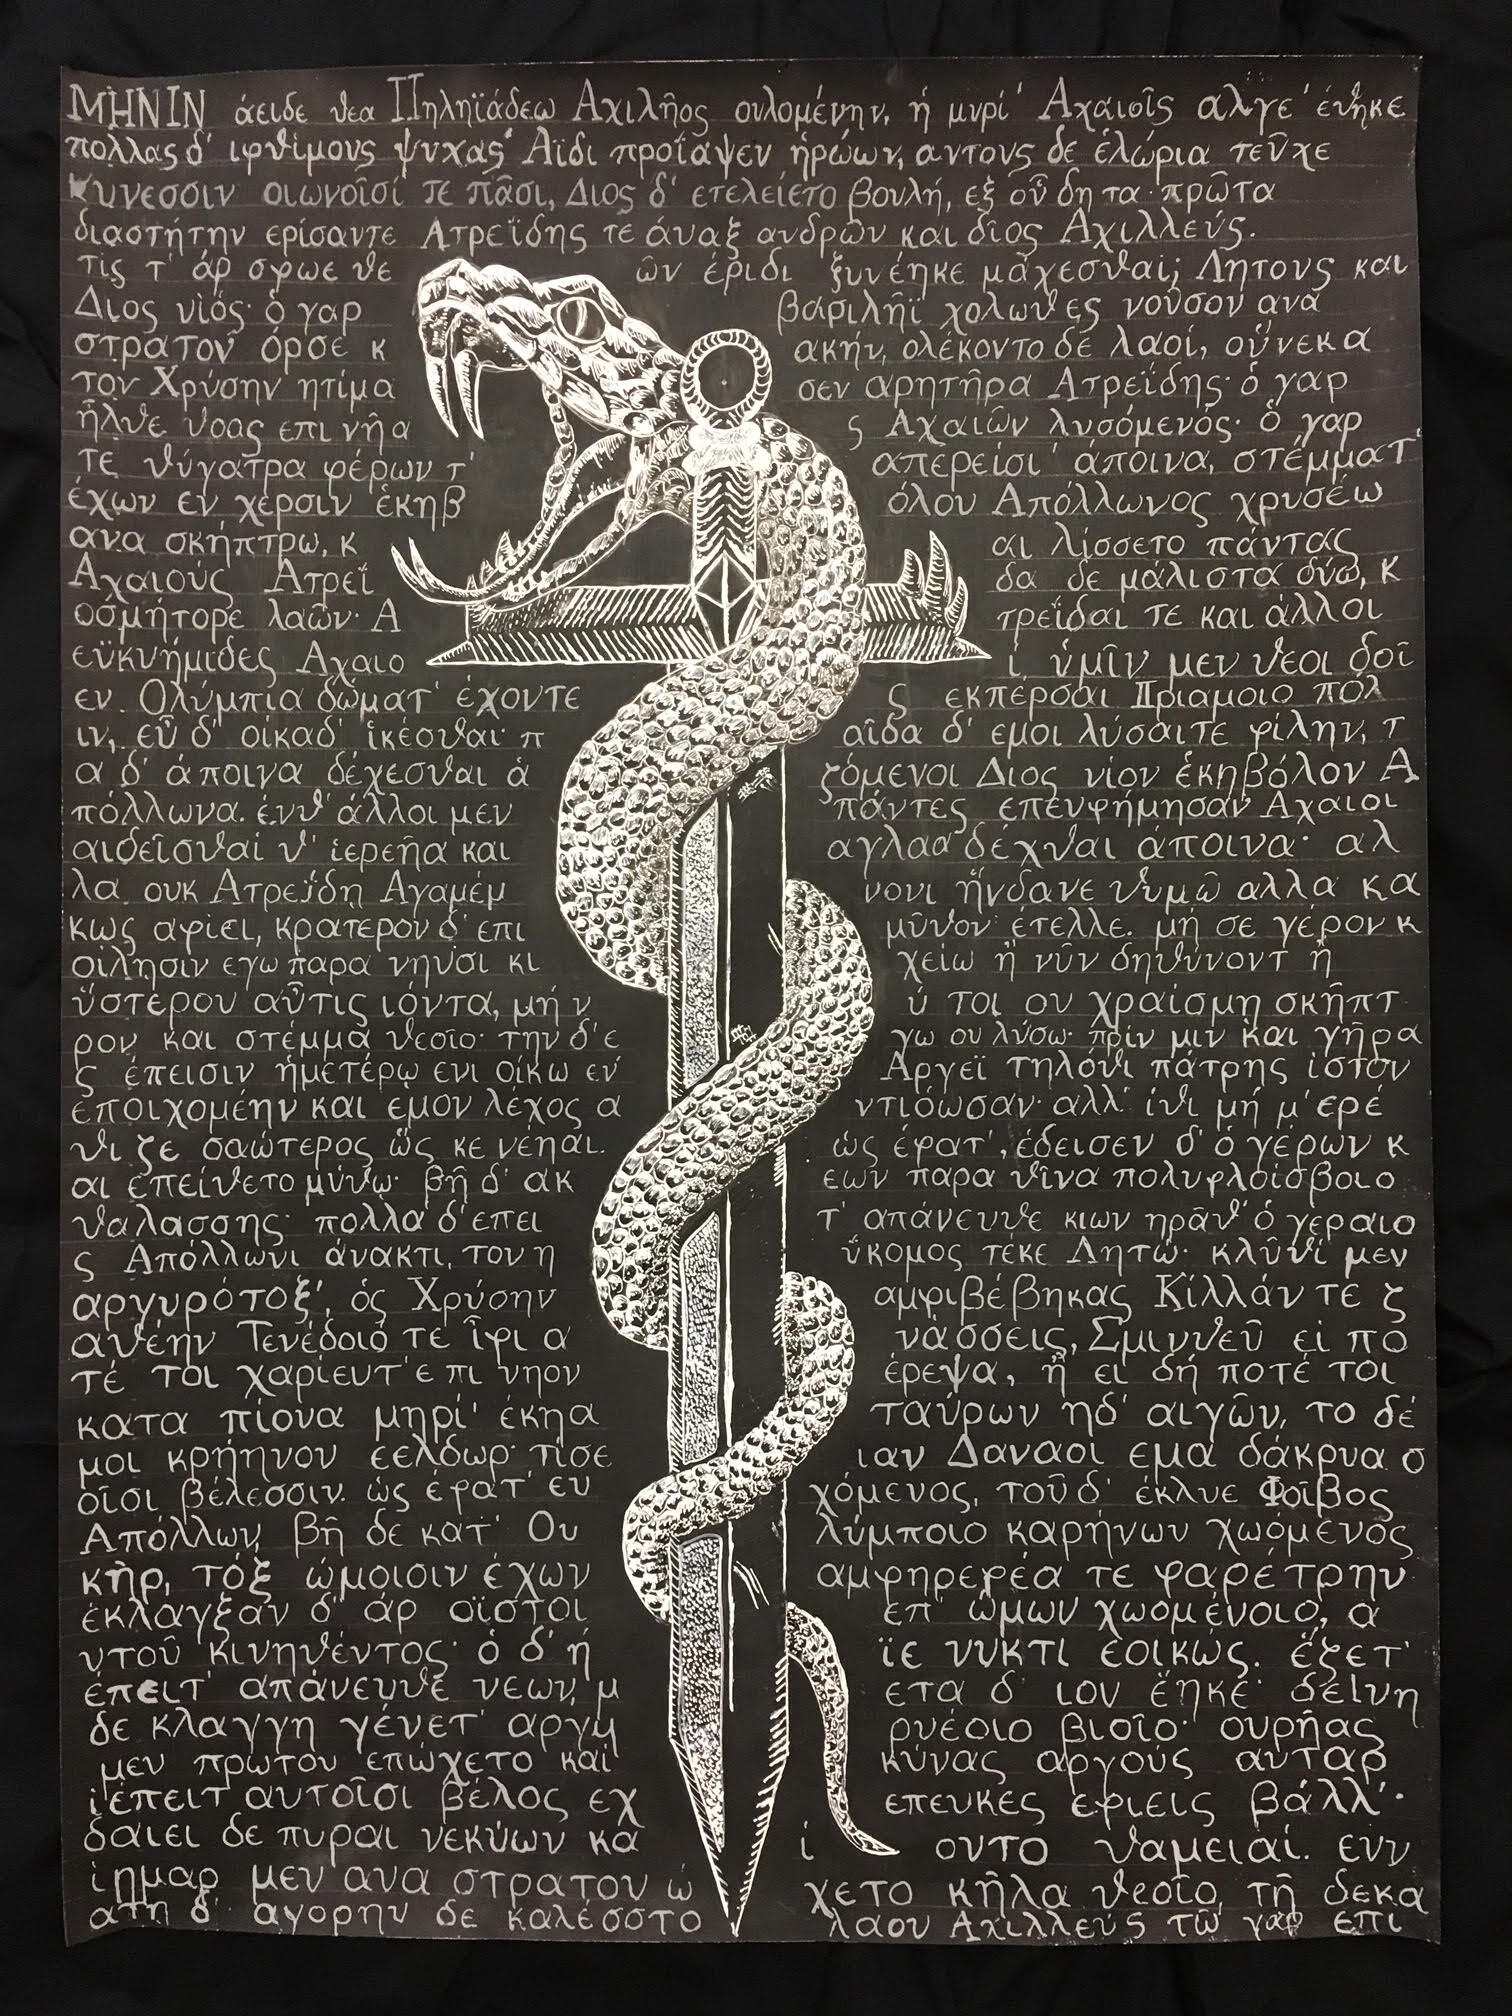 ΜΗΝΙΝ άειδε θεα Πηληϊάδεω Αχιλη̃ος ουλομένην, ή μυρί' Αχαιοι̃ς αλγε' έθηκε
πολλας δ' ιφθίμους ψυχας Άϊδι προΐαψεν ἡρώων, αυτους δε ἑλώρια τευ̃χε
κυνεσσιν οιωνοι̃σί τε πα̃σι, Διος δ' ετελείετο βουλή, εξ οὗ δη τα πρω̃τα
διαστήτην ερίσαντε Ατρεΐδης τε άναξ ανδρω̃ν και δι̃ος Αχιλλεύς.
τίς τ' άρ σφωε θε ω̃ν έριδι ξυνέηκε μάχεσθαι; Λητους και
Διος υἱός· ὁ γαρ βασιληϊ χολωθες νου̃σον ανα
στρατον όρσε κ ακήν, ολέκοντο δε λαοί, οὕνεκα
τον Χρύσην ητίμα σεν αρητη̃ρα Ατρεΐδης· ὁ γαρ
ἠ̃λθε θοας επι νη̃α ς Αχαιω̃ν λυσόμενός· ὁ γαρ
τε θύγατρα φέρων τ' απερείσι' άποινα, στέμματ'
έχων εν χερσιν ἑκηβ όλου Απόλλωνος χρυσέω
ανα σκήπτρω, κ αι λίσσετο πάντας
Αχαιούς Ατρεΐ δα δε μάλιστα δύω, κ
οσμήτορε λαω̃ν· Α τρεΐδαι τε και άλλοι
εϋκνήμιδες Αχαιο ί, ὑμι̃ν μεν θεοι δοι̃
εν. Ολύμπια δώματ' έχοντε ς εκπέρσαι Πριάμοιο πόλ
ιν, εὖ δ' οίκαδ' ἱκέσθαι· π αι̃δα δ' εμοι λύσαιτε φίλην, τ
α δ' άποινα δέχεσθαι ἁ ζόμενοι Διος υἱον ἑκηβόλον Α
πόλλωνα. ένθ' άλλοι μεν πάντες επευφήμησαν Αχαιοι
αιδει̃σθαί θ' ἱερη̃α και αγλαα δέχθαι άποινα· αλ
λα ουκ Ατρεΐδη Αγαμέμ νονι ἥνδανε θυμω̃ αλλα κα
κως αφίει, κρατερον δ' επι μυ̃θον έτελλε. μή σε γέρον κ
οίλησιν εγω παρα νηυσι κι χείω ἢ νυ̃ν δηθύνοντ ἢ
ὕστερον αυ̃τις ιόντα, μή ν ύ τοι ου χραίσμη σκη̃πτ
ρον και στέμμα θεοι̃ο· την δ' ε γω ου λύσω· πρίν μιν και γη̃ρα
ς έπεισιν ἡμετέρω ενι οίκω εν Αργεϊ τηλόθι πάτρης ἱστον
εποιχομένην και εμον λέχος α ντιόωσαν· αλλ' ίθι μή μ' ερέ
θιζε σαώτερος ὥς κε νέηαι. ὡς έφατ', έδεισεν δ' ὁ γέρων κ
αι επείθετο μύθω· βη̃ δ' ακ έων παρα θι̃να πολυφλοίσβοιο
θαλασσης· πολλα δ' επει τ' απάνευθε κιων ηρα̃θ' ὁ γεραιο
ς Απόλλωνι άνακτι, τον η ΰκομος τέκε Λητώ· κλυ̃θί μεν
αργυρότοξ', ὁς Χρύσην αμφιβέβηκας Κίλλάν τε ζ
αθέην Τενέδοιό τε ἶφι α νάσσεις, Σμινθευ̃ εί πο
τέ τοι χαρίεντ' επι νηον έρεψα, ἢ ει δή ποτέ τοι
κατα πίονα μηρί' έκηα ταύρων ηδ' αιγω̃ν, το δέ
μοι κρήηνον εελδωρ· τίσε ιαν Δαναοι εμα δάκρυα σ
οι̃σι βέλεσσιν. ὡς έφατ' ευ χόμενος, του̃ δ' έκλυε Φοι̃βος
Απόλλων, βη̃ δε κατ' Ου λύμποιο καρήνων χωόμενος
κη̃ρ, τόξ ώμοισιν έχων αμφηρεφέα τε φαρέτρην
έκλαγξαν δ' άρ οϊστοι επ' ώμων χωομένοιο, α
υτου̃ κινηθέντος· ὁ δ' ή ϊε νυκτι εοικώς. ἕζετ'
έπειτ' απάνευθε νεων, μ ετα δ' ιον ἕηκε· δεινη
δε κλαγγη γένετ' αργυ ρυέοιο βιοι̃ο· ουρη̃ας
μεν πρωτον επώχετο και κύνας αργούς αυταρ
ι έπειτ αυτοι̃σι βέλος εχ επευκες εφιεις βάλλ'·
δαιει δε πυραι νεκύων κα ί οντο θαμειαί. ενν
ημαρ μεν ανα στρατον ώ χετο κη̃λα θεοι̃ο, τη̃ δεκα
ατη δ' αγορην δε καλέσστο λαον Αχιλλεύς τω̃ γαρ επι